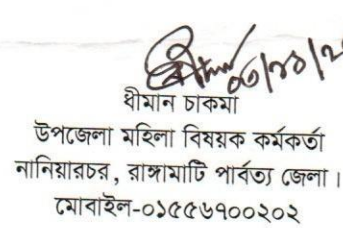 ধীমান চাকমা
উপজেলা মহিলা বিষয়ক কর্মকর্তা
নানিয়ারচর, রাঙ্গামাটি পার্বত্য জেলা।
মোবাইল-০১৫৫৬৭০০২০২